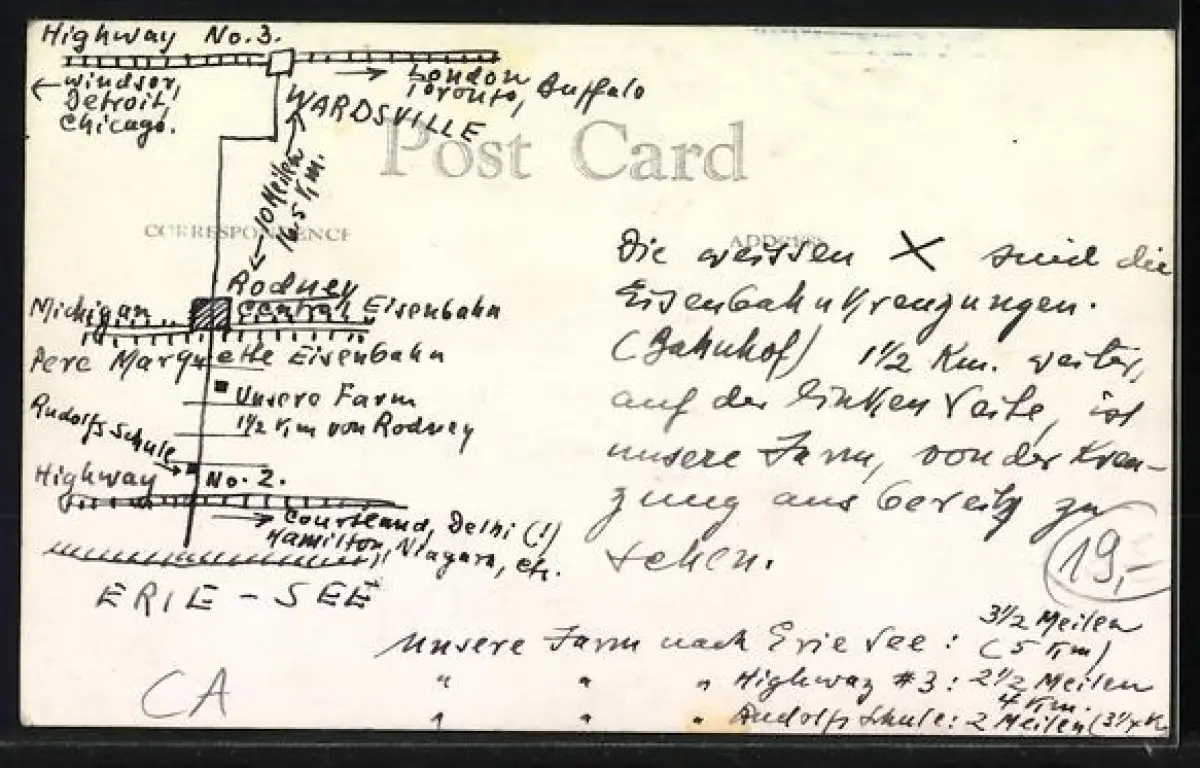 Highway No. 3.
← Windsor, Detroit, Chicago.
→ London Toronto, Buffalo
WARDSVILLE
Post Card
10 Meilen
16.5 Km.
CORRESPONDENCE
ADDRESS
Rodney
Michigan Central Eisenbahn
Pere Marquette Eisenbahn
Unsere Farm
1½ Km von Rodney
Rudolfs Schule
Highway No. 2.
→ Courtland, Delhi (!)
Hamilton, Niagara, etc.
ERIE - SEE
Die weissen X sind die
Eisenbahnkreuzungen.
(Bahnhof) 1½ Km. weiter,
auf der linken Seite, ist
unsere Farm, von der Kreu-
zung aus bereits zu
sehen.
19,-
Unsere Farm nach Erie See: 3½ Meilen
(5 Km)
" " " Highway #3: 2½ Meilen
4 Km.
" " " Rudolfs Schule: 2 Meilen (3¼ K
CA